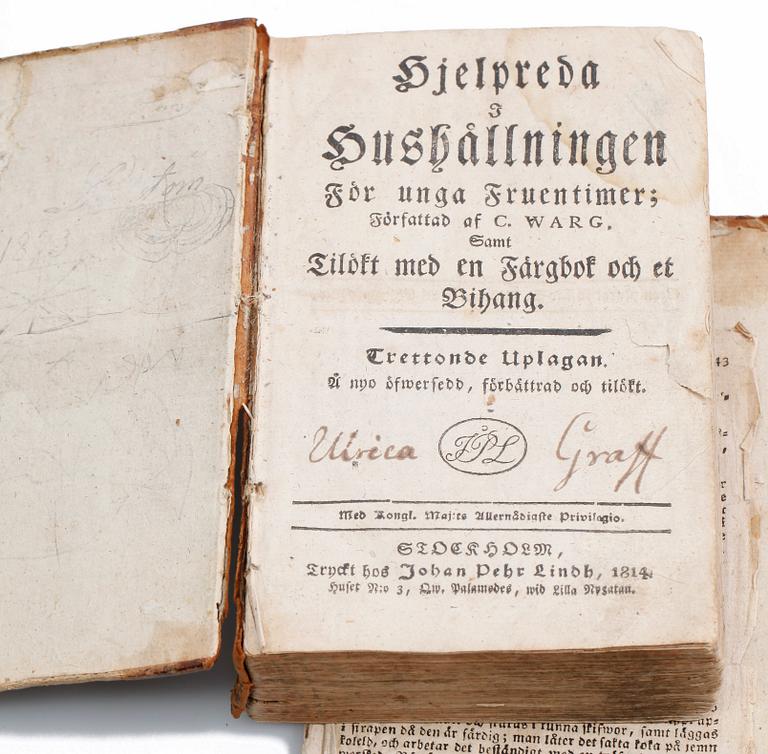 Hjelpreda
I
Hushållningen
För unga Fruentimer;
Författad af C. WARG,
Samt
Tilökt med en Färgbok och et
Bihang.
Trettonde Uplagan.
Å nyo öfwersedd, förbättrad och tilökt.
Ulrica JPL Graff
Med Kongl. Maj:ts Allernådigste Privilegio.
STOCKHOLM,
Tryckt hos Johan Pehr Lindh, 1814.
Huset N:o 3, Qw. Palamedes, wid Lilla Nygatan.
43
i sirapen då den är färdig; man låter det sakta koka på jemn
koleld, och arbetar det beständigt med en